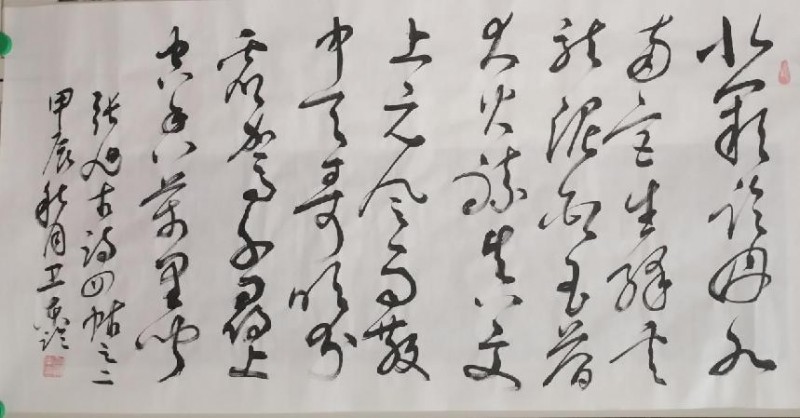 北闕臨丹水
南宮生絳雲
龍泥印玉簡
大火煉真文
上元風雨散
中天哥吹分
虛駕千尋上
空香萬里聞
張旭古詩四帖之二
甲辰秋月卫東